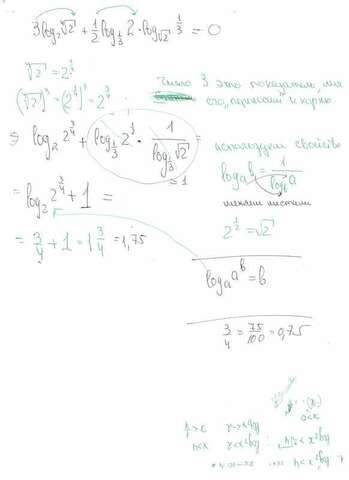 3log₂∜2 + 1/2 log_{1/3} 2 · log_{√2} 1/3 = 0
∜2 = 2^{1/4}
(∜2)³ = (2^{1/4})³ = 2^{3/4}
Число 3 это показатель, мы
его, перенесли к корню.
⇒ log₂ 2^{3/4} + log_{1/3} 2^{1/2} · 1/log_{1/3} √2 =
= 1
используем свойство
log_a b = 1/log_b a
меняем местами
= log₂ 2^{3/4} + 1 =
2^{1/2} = √2
= 3/4 + 1 = 1 3/4 = 1,75
log_a a^b = b
3/4 = 75/100 = 0,75